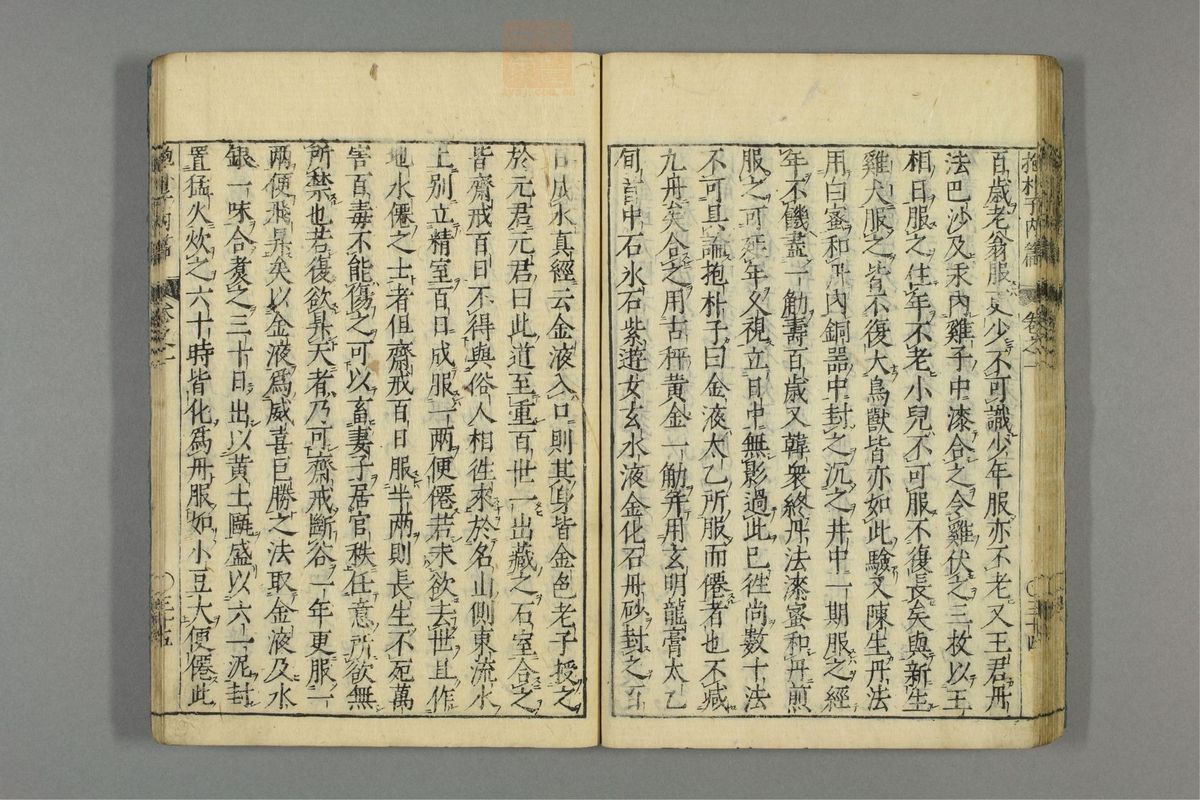 百歲老翁服更少不可識少年服亦不老又王君丹
法巴沙及汞內雞子中漆合之令雞伏之三枚以王
相日服之住年不老小兒不可服不復長矣與新生
雞犬服之皆不復大鳥獸皆亦如此驗又陳生丹法
用白蜜和丹內銅器中封之沉之井中一期服之經
年不饑盡一觔壽百歲又韓衆終丹法漆蜜和丹煎
服之可延年久視立日中無影過此已徃尚數十法
不可具論抱朴子曰金液太乙所服而僊者也不減
九丹矣合之用古秤黃金一觔并用玄明龍膏太乙
旬首中石氷石紫遊女玄水液金化石丹砂封之百
日成水真經云金液入口則其身皆金色老子授之
於元君元君曰此道至重百世一出藏之石室合之
皆齋戒百日不得與俗人相徃來於名山側東流水
上別立精室百日成服一兩便僊若未欲去世且作
地水僊之士者但齋戒百日服半兩則長生不死萬
害百毒不能傷之可以畜妻子居官秩任意所欲無
所禁也若復欲昇天者乃可齋戒斷谷一年更服一
兩便飛昇矣以金液爲威喜巨勝之法取金液及水
銀一味合煮之三十日出以黃土甌盛以六一泥封
置猛火炊之六十時皆化爲丹服如小豆大便僊此
抱朴子內篇
卷之一
三十四
抱朴子內篇
卷之一
三十五